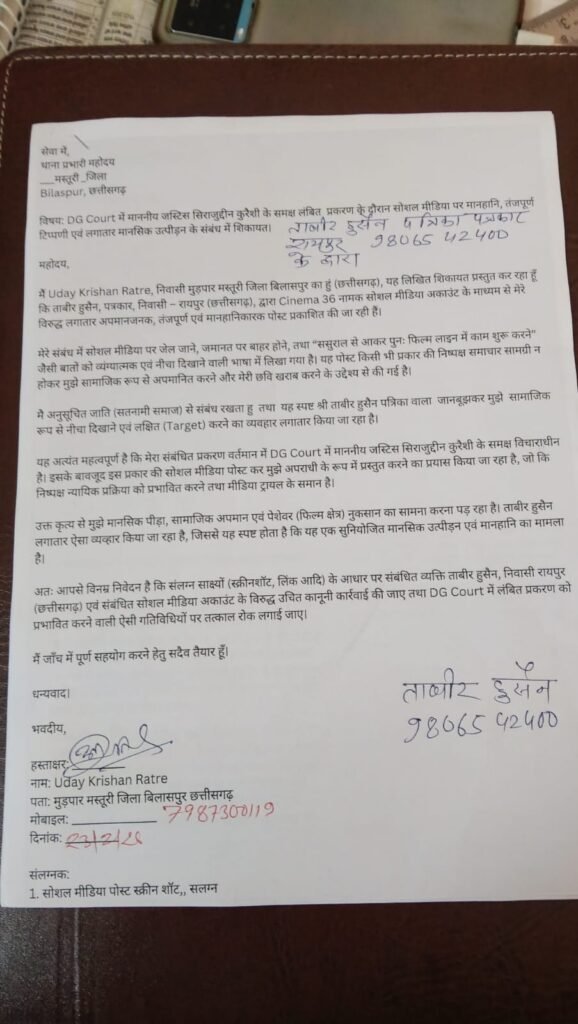 सेवा में,
थाना प्रभारी महोदय
__मस्तूरी _जिला
Bilaspur, छत्तीसगढ़
विषय: DG Court में माननीय जस्टिस सिराजुद्दीन कुरैशी के समक्ष लंबित प्रकरण के दौरान सोशल मीडिया पर मानहानि, तंजपूर्ण
टिप्पणी एवं लगातार मानसिक उत्पीड़न के संबंध में शिकायत।
ताबीर हुसैन पत्रिका पत्रकार
रायपुर 98065 42400
के द्वारा
महोदय,
मैं Uday Krishan Ratre, निवासी मुड़पार मस्तूरी जिला बिलासपुर का हुं (छत्तीसगढ़), यह लिखित शिकायत प्रस्तुत कर रहा हूँ
कि ताबीर हुसैन, पत्रकार, निवासी – रायपुर (छत्तीसगढ़), द्वारा Cinema 36 नामक सोशल मीडिया अकाउंट के माध्यम से मेरे
विरुद्ध लगातार अपमानजनक, तंजपूर्ण एवं मानहानिकारक पोस्ट प्रकाशित की जा रही है।
मेरे संबंध में सोशल मीडिया पर जेल जाने, जमानत पर बाहर होने, तथा “ससुराल से आकर पुनः फिल्म लाइन में काम शुरू करने”
जैसी बातों को व्यंग्यात्मक एवं नीचा दिखाने वाली भाषा में लिखा गया है। यह पोस्ट किसी भी प्रकार की निष्पक्ष समाचार सामग्री न
होकर मुझे सामाजिक रूप से अपमानित करने और मेरी छवि खराब करने के उद्देश्य से की गई है।
मै अनुसूचित जाति (सतनामी समाज) से संबंध रखता हु तथा यह स्पष्ट श्री ताबीर हुसैन पत्रिका वाला जानबूझकर मुझे सामाजिक
रूप से नीचा दिखाने एवं लक्षित (Target) करने का व्यवहार लगातार किया जा रहा है।
यह अत्यंत महत्वपूर्ण है कि मेरा संबंधित प्रकरण वर्तमान में DG Court में माननीय जस्टिस सिराजुद्दीन कुरैशी के समक्ष विचाराधीन
है। इसके बावजूद इस प्रकार की सोशल मीडिया पोस्ट कर मुझे अपराधी के रूप में प्रस्तुत करने का प्रयास किया जा रहा है, जो कि
निष्पक्ष न्यायिक प्रक्रिया को प्रभावित करने तथा मीडिया ट्रायल के समान है।
उक्त कृत्य से मुझे मानसिक पीड़ा, सामाजिक अपमान एवं पेशेवर (फिल्म क्षेत्र) नुकसान का सामना करना पड़ रहा है। ताबीर हुसैन
लगातार ऐसा व्यव्हार किया जा रहा है, जिससे यह स्पष्ट होता है कि यह एक सुनियोजित मानसिक उत्पीड़न एवं मानहानि का मामला
है।
अतः आपसे विनम्र निवेदन है कि संलग्न साक्ष्यों (स्क्रीनशॉट, लिंक आदि) के आधार पर संबंधित व्यक्ति ताबीर हुसैन, निवासी रायपुर
(छत्तीसगढ़) एवं संबंधित सोशल मीडिया अकाउंट के विरुद्ध उचित कानूनी कार्रवाई की जाए तथा DG Court में लंबित प्रकरण को
प्रभावित करने वाली ऐसी गतिविधियों पर तत्काल रोक लगाई जाए।
मैं जाँच में पूर्ण सहयोग करने हेतु सदैव तैयार हूँ।
धन्यवाद।
ताबीर हुसैन
98065 42400
भवदीय,
हस्ताक्षर:
नाम: Uday Krishan Ratre
पता: मुड़पार मस्तूरी जिला बिलासपुर छत्तीसगढ़
मोबाइल: ____________ 7987300119
दिनांक: 23/2/26
संलग्नक:
1. सोशल मीडिया पोस्ट स्क्रीन शॉट,, सलग्न